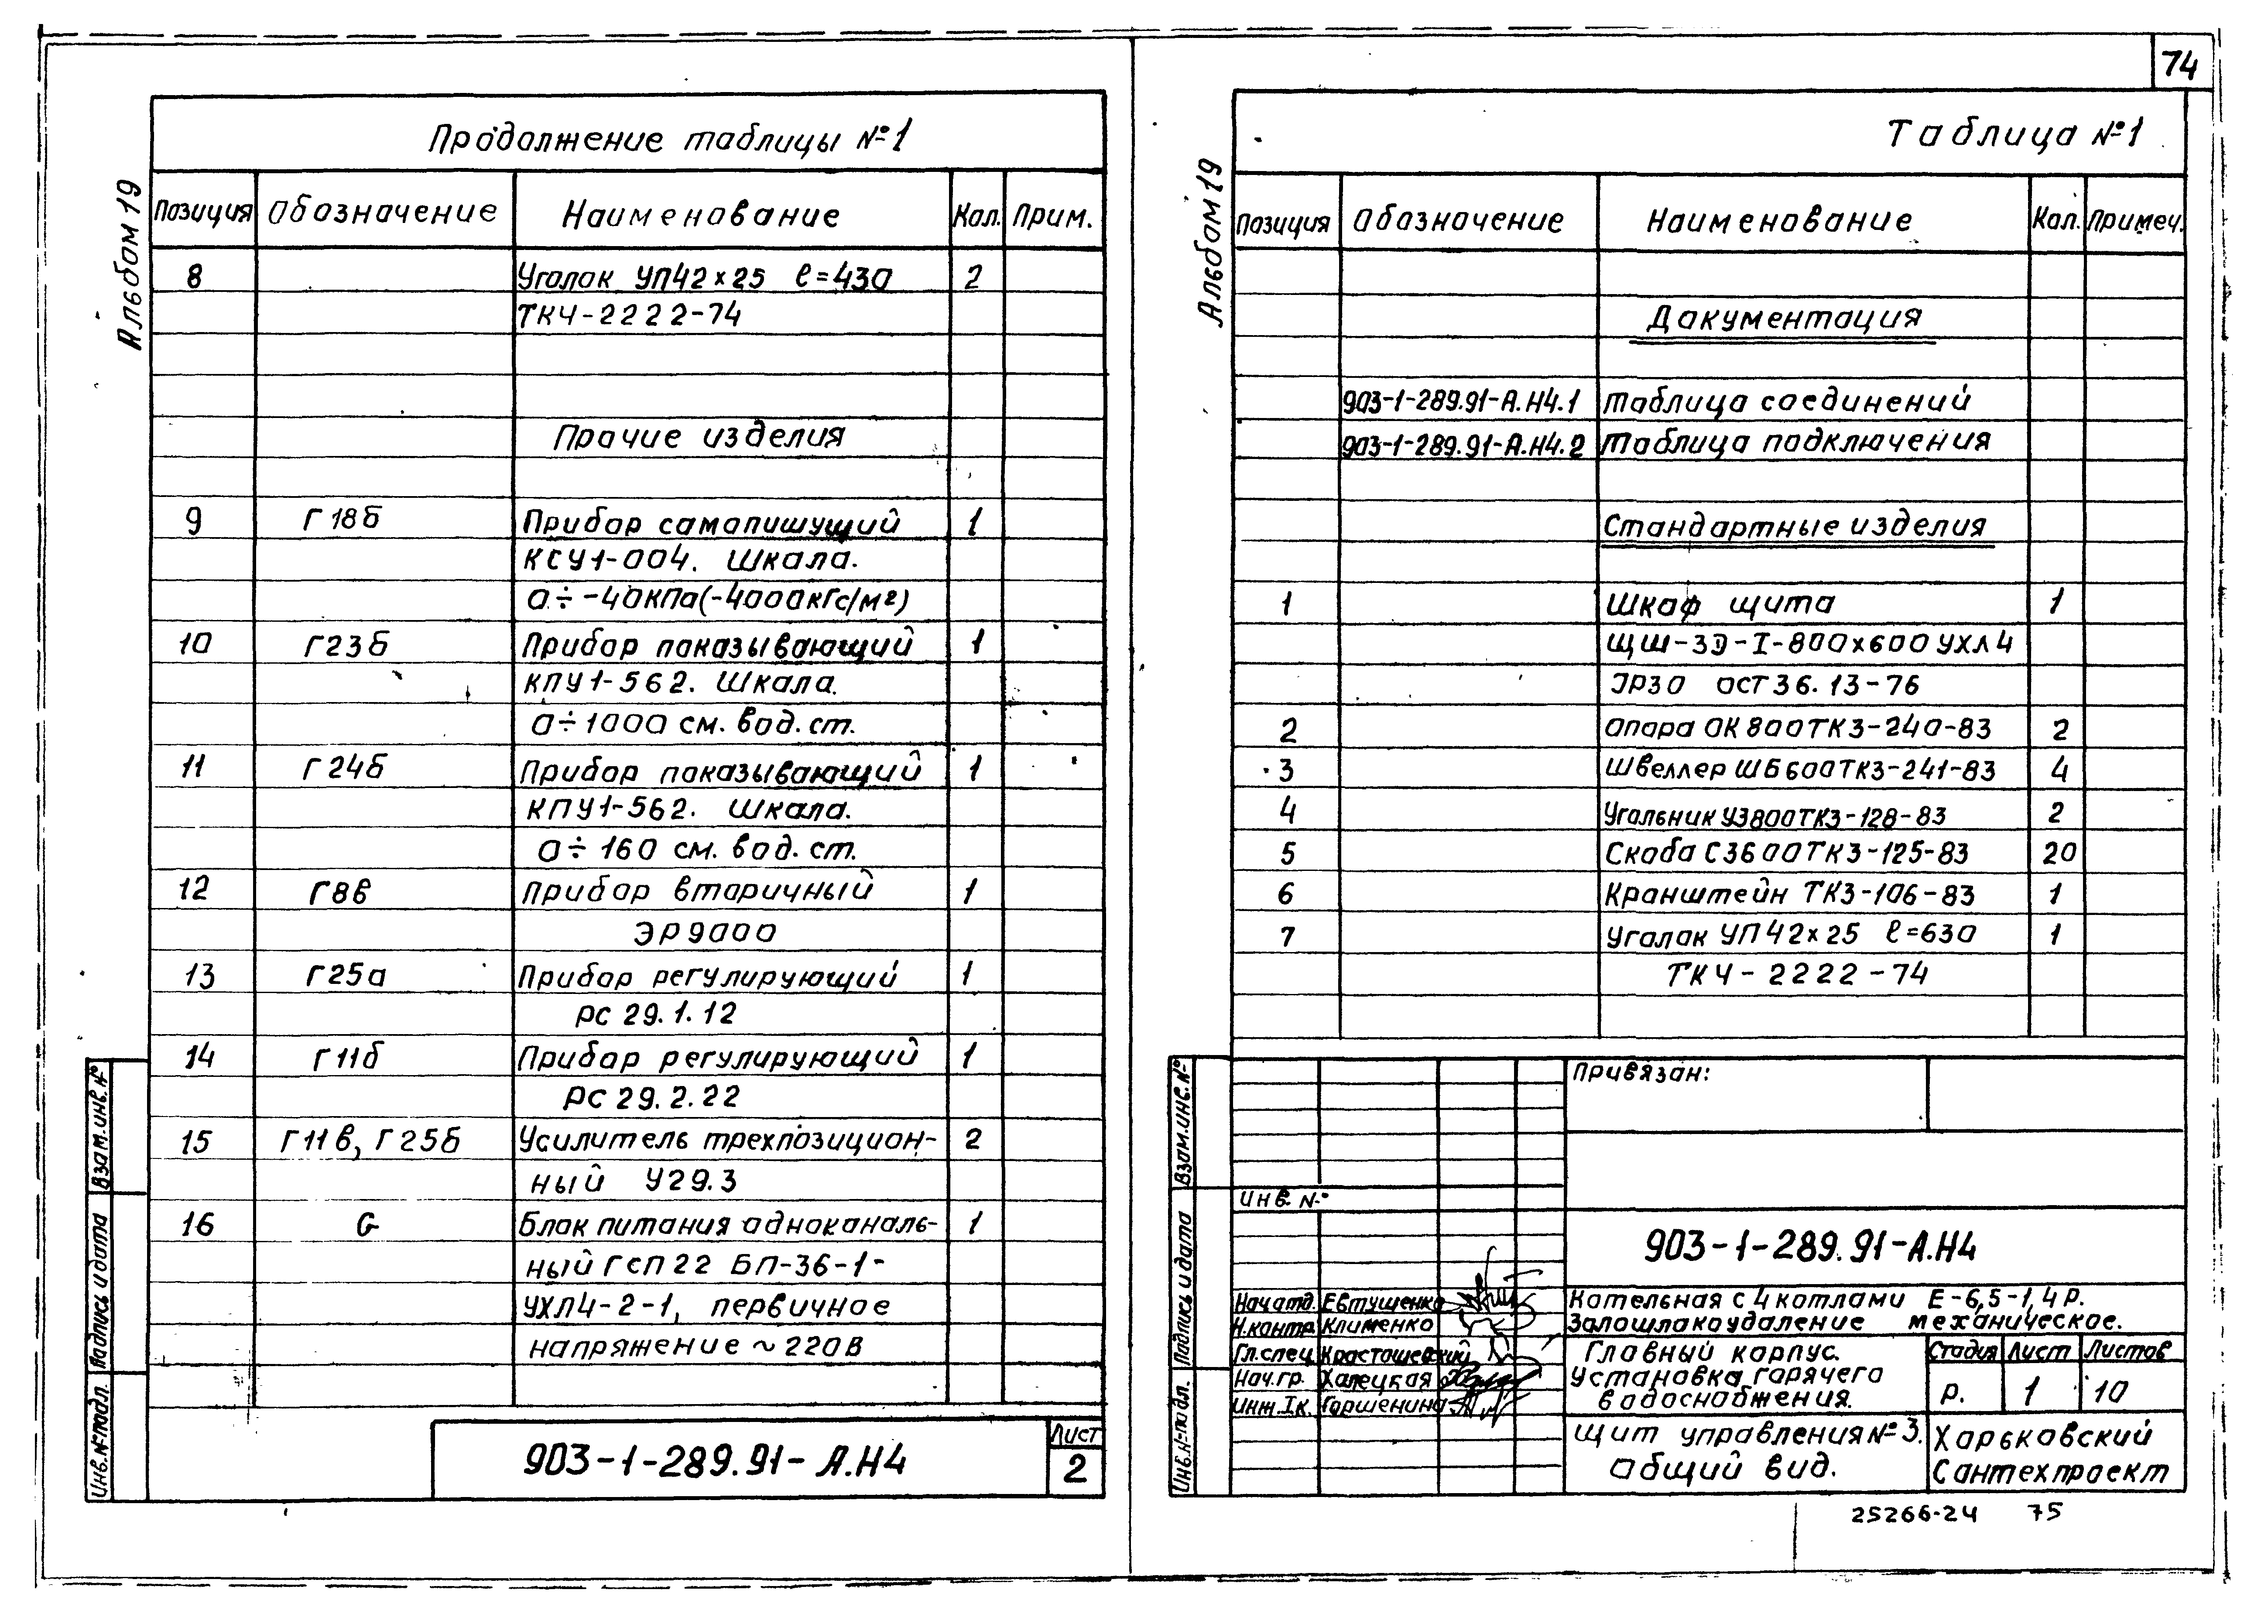 74
Альбом 19
Продолжение таблицы №1
Позиция Обозначение Наименование Кол. Прим.
8 Уголок УП42×25 ℓ=430 2
ТКЧ-2222-74
Прочие изделия
9 Г18б Прибор самопишущий 1
КСУ1-004. Шкала.
0÷-40кПа(-4000кгс/м²)
10 Г23б Прибор показывающий 1
КПУ1-562. Шкала.
0÷1000 см. вод. ст.
11 Г24б Прибор показывающий 1
КПУ1-562. Шкала.
0÷160 см. вод. ст.
12 Г8в Прибор вторичный 1
ЭР9000
13 Г25а Прибор регулирующий 1
РС 29.1.12
14 Г11б Прибор регулирующий 1
РС 29.2.22
15 Г11в, Г25б Усилитель трехпозицион- 2
ный У29.3
16 G Блок питания одноканаль- 1
ный ГСП22 БП-36-1-
УХЛ4-2-1, первичное
напряжение ~220В
903-1-289.91-А.Н4
Лист
2
Инв.№подл. Подпись и дата Взам.инв.№
Альбом 19
Таблица №1
Позиция Обозначение Наименование Кол. Примеч.
Документация
903-1-289.91-А.Н4.1 Таблица соединений
903-1-289.91-А.Н4.2 Таблица подключения
Стандартные изделия
1 Шкаф щита 1
ЩШ-3Д-I-800×600 УХЛ4
IP30 ОСТ36.13-76
2 Опора ОК800ТК3-240-83 2
3 Швеллер ШБ600ТК3-241-83 4
4 Угольник У3800ТК3-128-83 2
5 Скоба С3600ТК3-125-83 20
6 Кронштейн ТК3-106-83 1
7 Уголок УП42×25 ℓ=630 1
ТКЧ-2222-74
Привязан:
Инв. №
903-1-289.91-А.Н4
Нач.отд. Евтушенко
Н.контр. Клименко
Гл.спец. Красташевский
Нач.гр. Халецкая
Инж.Iк. Горшенина
Котельная с 4 котлами Е-6,5-1,4Р.
Золошлакоудаление механическое.
Главный корпус.
Установка горячего
водоснабжения.
Стадия Лист Листов
Р. 1 10
Щит управления №3.
Общий вид.
Харьковский
Сантехпроект
Инв.№подл. Подпись и дата Взам.инв.№
25266-24 75